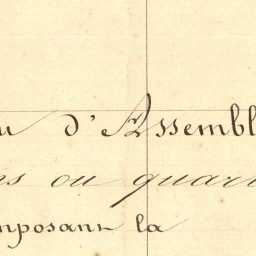 d'Assembl
ou quart
mposant la